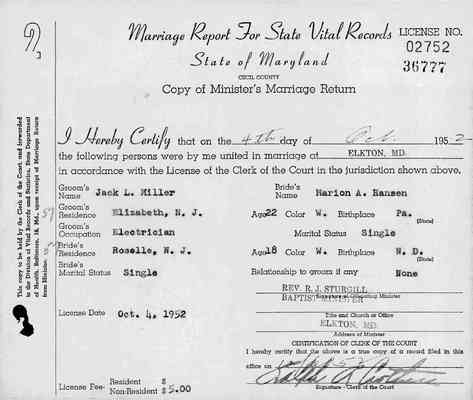 Marriage Report For State Vital Records
LICENSE NO.
State of Maryland
02752
CECIL COUNTY
36777
Copy of Minister's Marriage Return
I Hereby Certify that on the 4th day of Oct. 1952
the following persons were by me united in marriage at ELKTON, MD.
in accordance with the License of the Clerk of the Court in the jurisdiction shown above.
Groom's Name Jack L. Miller Bride's Name Marion A. Hansen
Groom's Residence Elizabeth, N. J. Age 22 Color W. Birthplace Pa. (State)
Groom's Occupation Electrician Marital Status Single
Bride's Residence Roselle, N. J. Age 18 Color W. Birthplace N. D. (State)
Bride's Marital Status Single Relationship to groom if any None
REV. R. J. STURGILL
BAPTIST MINISTER
Signature of Officiating Minister
License Date Oct. 4, 1952
Title and Church or Office
ELKTON, MD.
Address of Minister
CERTIFICATION OF CLERK OF THE COURT
I hereby certify that the above is a true copy of a record filed in this
office on
License Fee- Resident $
Non-Resident $5.00
Signature - Clerk of the Court
This copy to be held by the Clerk of the Court, and forwarded
to the Division of Vital Records and Statistics, State Department
of Health, Baltimore, 18, Md., upon receipt of Marriage Return
from Minister.